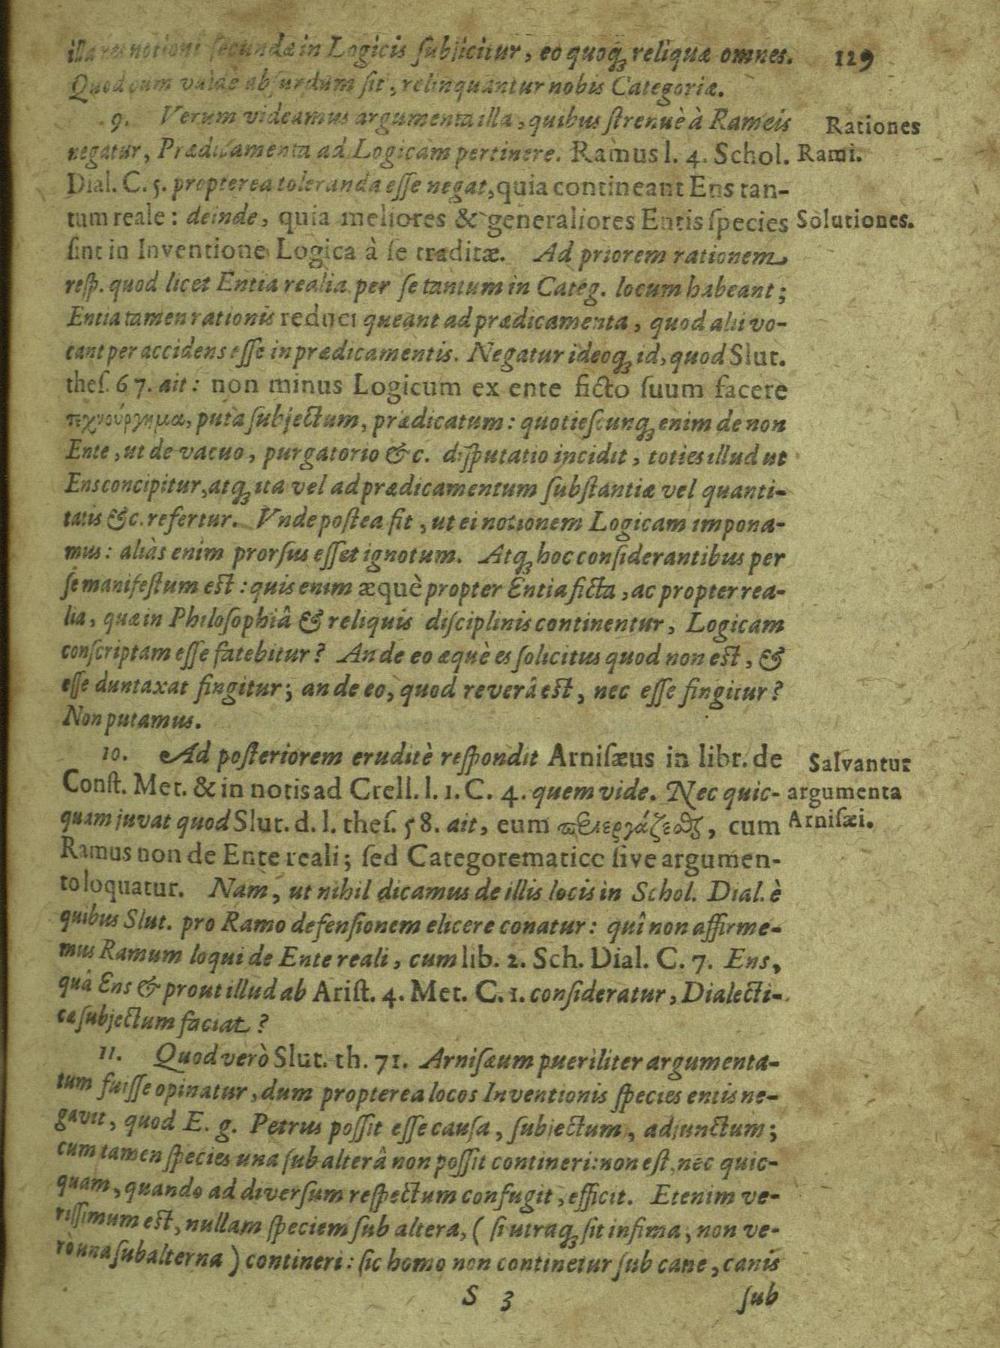 illarum notioni secundæ in Logicis subjicitur, eo quoq; reliquæ omnes. 129
Quod cum valde absurdum sit, relinquantur nobis Categoriæ.
9. Verum videamus argumenta illa, quibus strenuè à Rameis Rationes
negatur, Prædicamenta ad Logicam pertinere. Ramus l. 4. Schol. Rami.
Dial. C. 5. propterea toleranda esse negat, quia contineant Ens tan-
tum reale: deinde, quia meliores & generaliores Entis species Solutiones.
sint in Inventione Logica à se traditæ. Ad priorem rationem
resp. quod licet Entia realia per se tantum in Categ. locum habeant;
Entia tamen rationis reduci queant ad prædicamenta, quod alii vo-
cant per accidens esse in prædicamentis. Negatur ideoq; id, quod Slut.
thes. 67. ait: non minus Logicum ex ente ficto suum facere
τεχνούργημα, puta subjectum, prædicatum: quotiescunq; enim de non
Ente, ut de vacuo, purgatorio &c. disputatio incidit, toties illud ut
Ens concipitur, atq; ita vel ad prædicamentum substantiæ vel quanti-
tatis &c. refertur. Vnde postea fit, ut ei notionem Logicam impona-
mus: aliàs enim prorsus esset ignotum. Atq; hoc considerantibus per
se manifestum est: quis enim æquè propter Entia ficta, ac propter rea-
lia, quæ in Philosophiâ & reliquis disciplinis continentur, Logicam
conscriptam esse fatebitur? An de eo æquè es solicitus quod non est, &
esse duntaxat fingitur; an de eo, quod reverâ est, nec esse fingitur?
Non putamus.
10. Ad posteriorem eruditè respondit Arnisæus in libr. de Salvantur
Const. Met. & in notis ad Crell. l. 1. C. 4. quem vide. Nec quic- argumenta
quam juvat quod Slut. d. l. thes. 58. ait, eum περιεργάζεσθ, cum Arnisæi.
Ramus non de Ente reali; sed Categorematice sive argumen-
to loquatur. Nam, ut nihil dicamus de illis locis in Schol. Dial. è
quibus Slut. pro Ramo defensionem elicere conatur: quî non affirme-
mus Ramum loqui de Ente reali, cum lib. 2. Sch. Dial. C. 7. Ens,
quâ Ens & prout illud ab Arist. 4. Met. C. 1. consideratur, Dialecti-
cæ subjectum faciat?
11. Quod verò Slut. th. 71. Arnisæum pueriliter argumenta-
tum fuisse opinatur, dum propterea locos Inventionis species entis ne-
gavit, quod E. g. Petrus possit esse causa, subjectum, adjunctum;
cum tamen species una sub alterâ non possit contineri: non est, nec quic-
quam, quando ad diversum respectum confugit, efficit. Etenim ve-
rissimum est, nullam speciem sub altera, (si utraq; sit infima, non ve-
rò una subalterna) contineri: sic homo non continetur sub cane, canis
S 3 sub